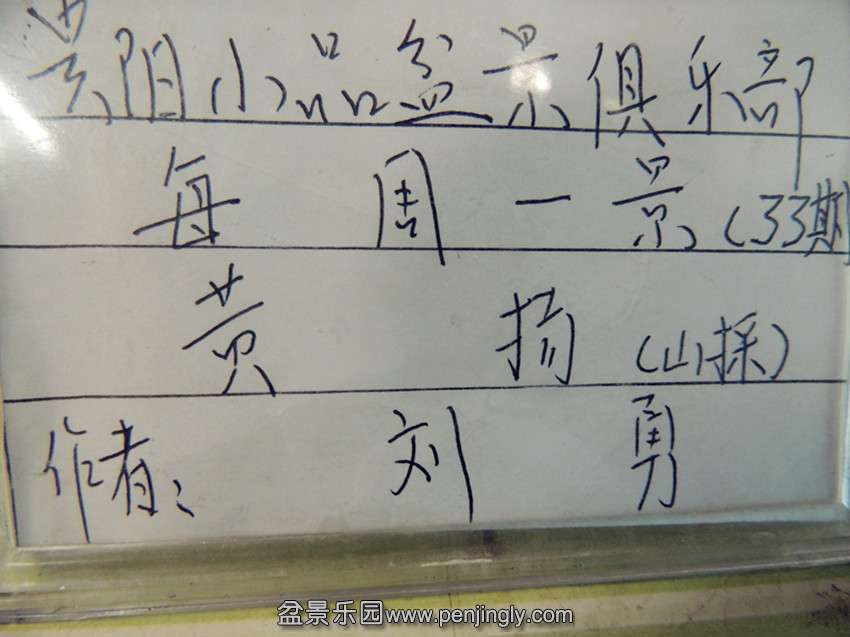 贵阳小品盆景俱乐部
每周一景(33期)
黄扬(山採)
作者:刘勇
盆景乐园www.penjingly.com